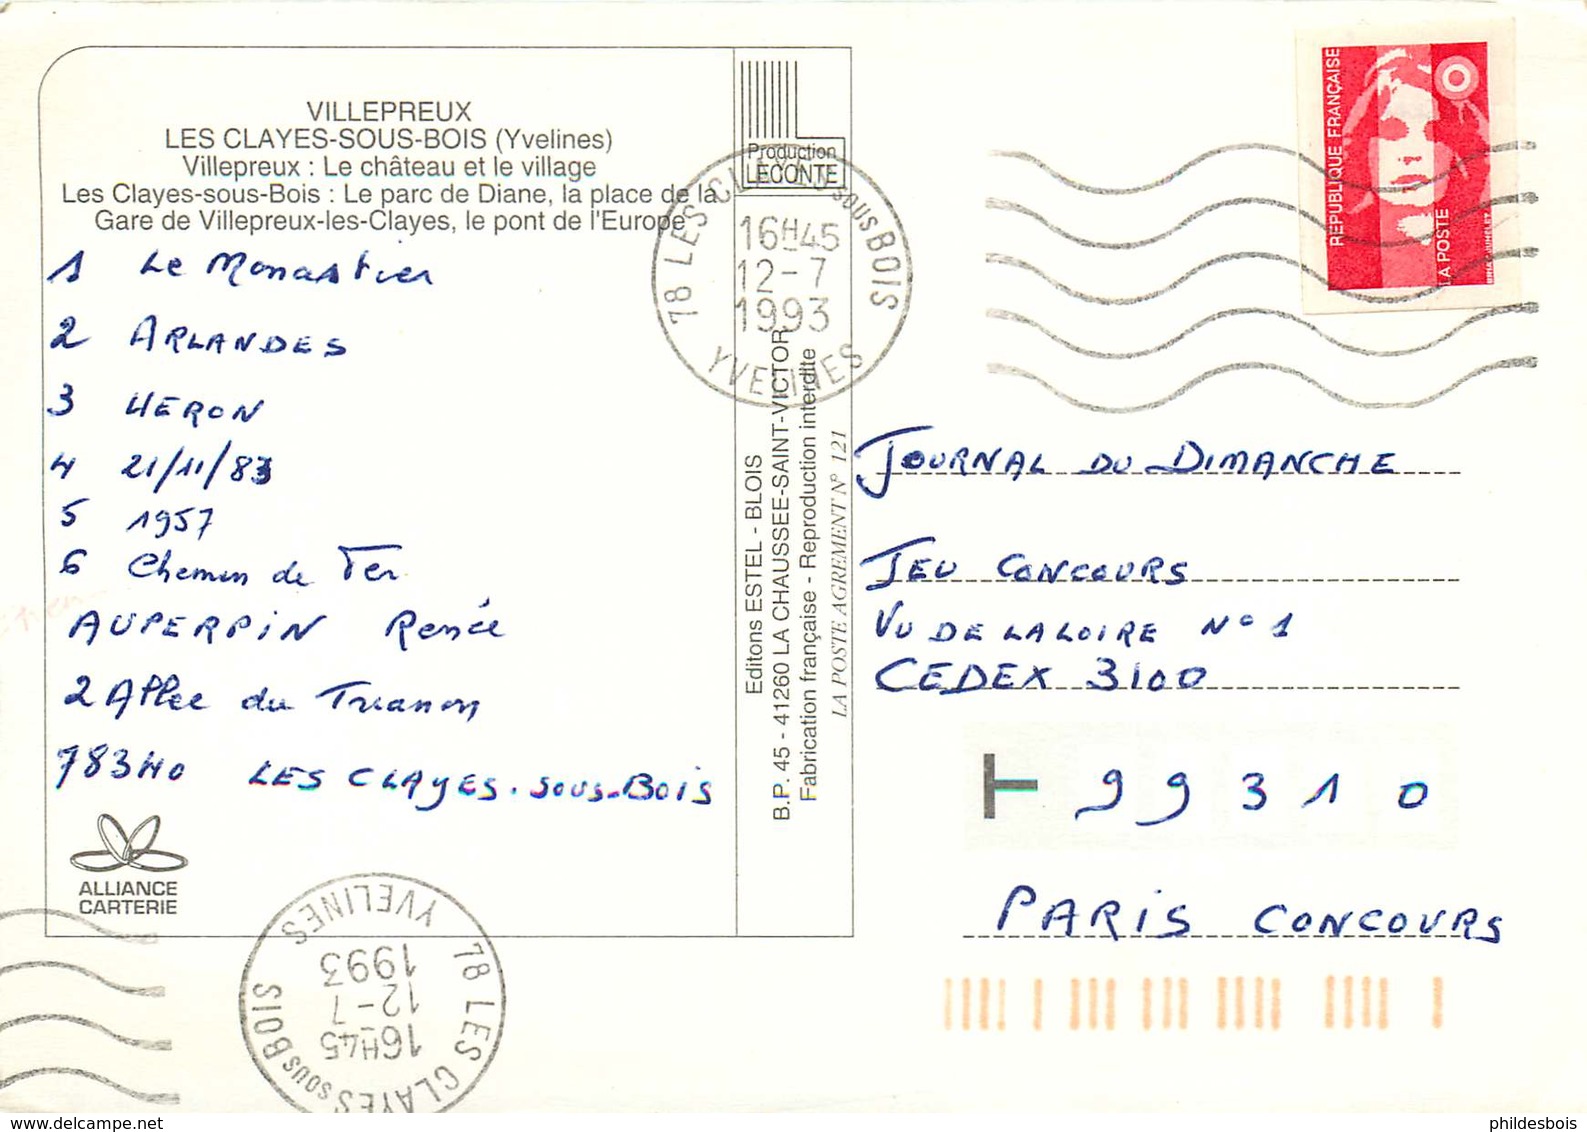 VILLEPREUX
LES CLAYES-SOUS-BOIS (Yvelines)
Villepreux : Le château et le village
Les Clayes-sous-Bois : Le parc de Diane, la place de la
Gare de Villepreux-les-Clayes, le pont de l'Europe
1 Le Monastier
2 ARLANDES
3 HERON
4 21/11/83
5 1957
6 Chemin de Fer
AUPERPIN Renée
2 Allee du Trianon
78340 LES CLAYES-SOUS-BOIS
ALLIANCE
CARTERIE
Production
LECONTE
78 LES CLAYES SOUS BOIS
16H45
12-7
1993
YVELINES
Editons ESTEL - BLOIS
B.P. 45 - 41260 LA CHAUSSEE-SAINT-VICTOR
Fabrication française - Reproduction interdite
LA POSTE AGREMENT N° 121
REPUBLIQUE FRANÇAISE
LA POSTE
JOURNAL DU DIMANCHE
JEU CONCOURS
VU DE LA LOIRE N° 1
CEDEX 3100
T 99310
PARIS CONCOURS
78 LES CLAYES SOUS BOIS
16H45
12-7
1993
YVELINES
phildesbois